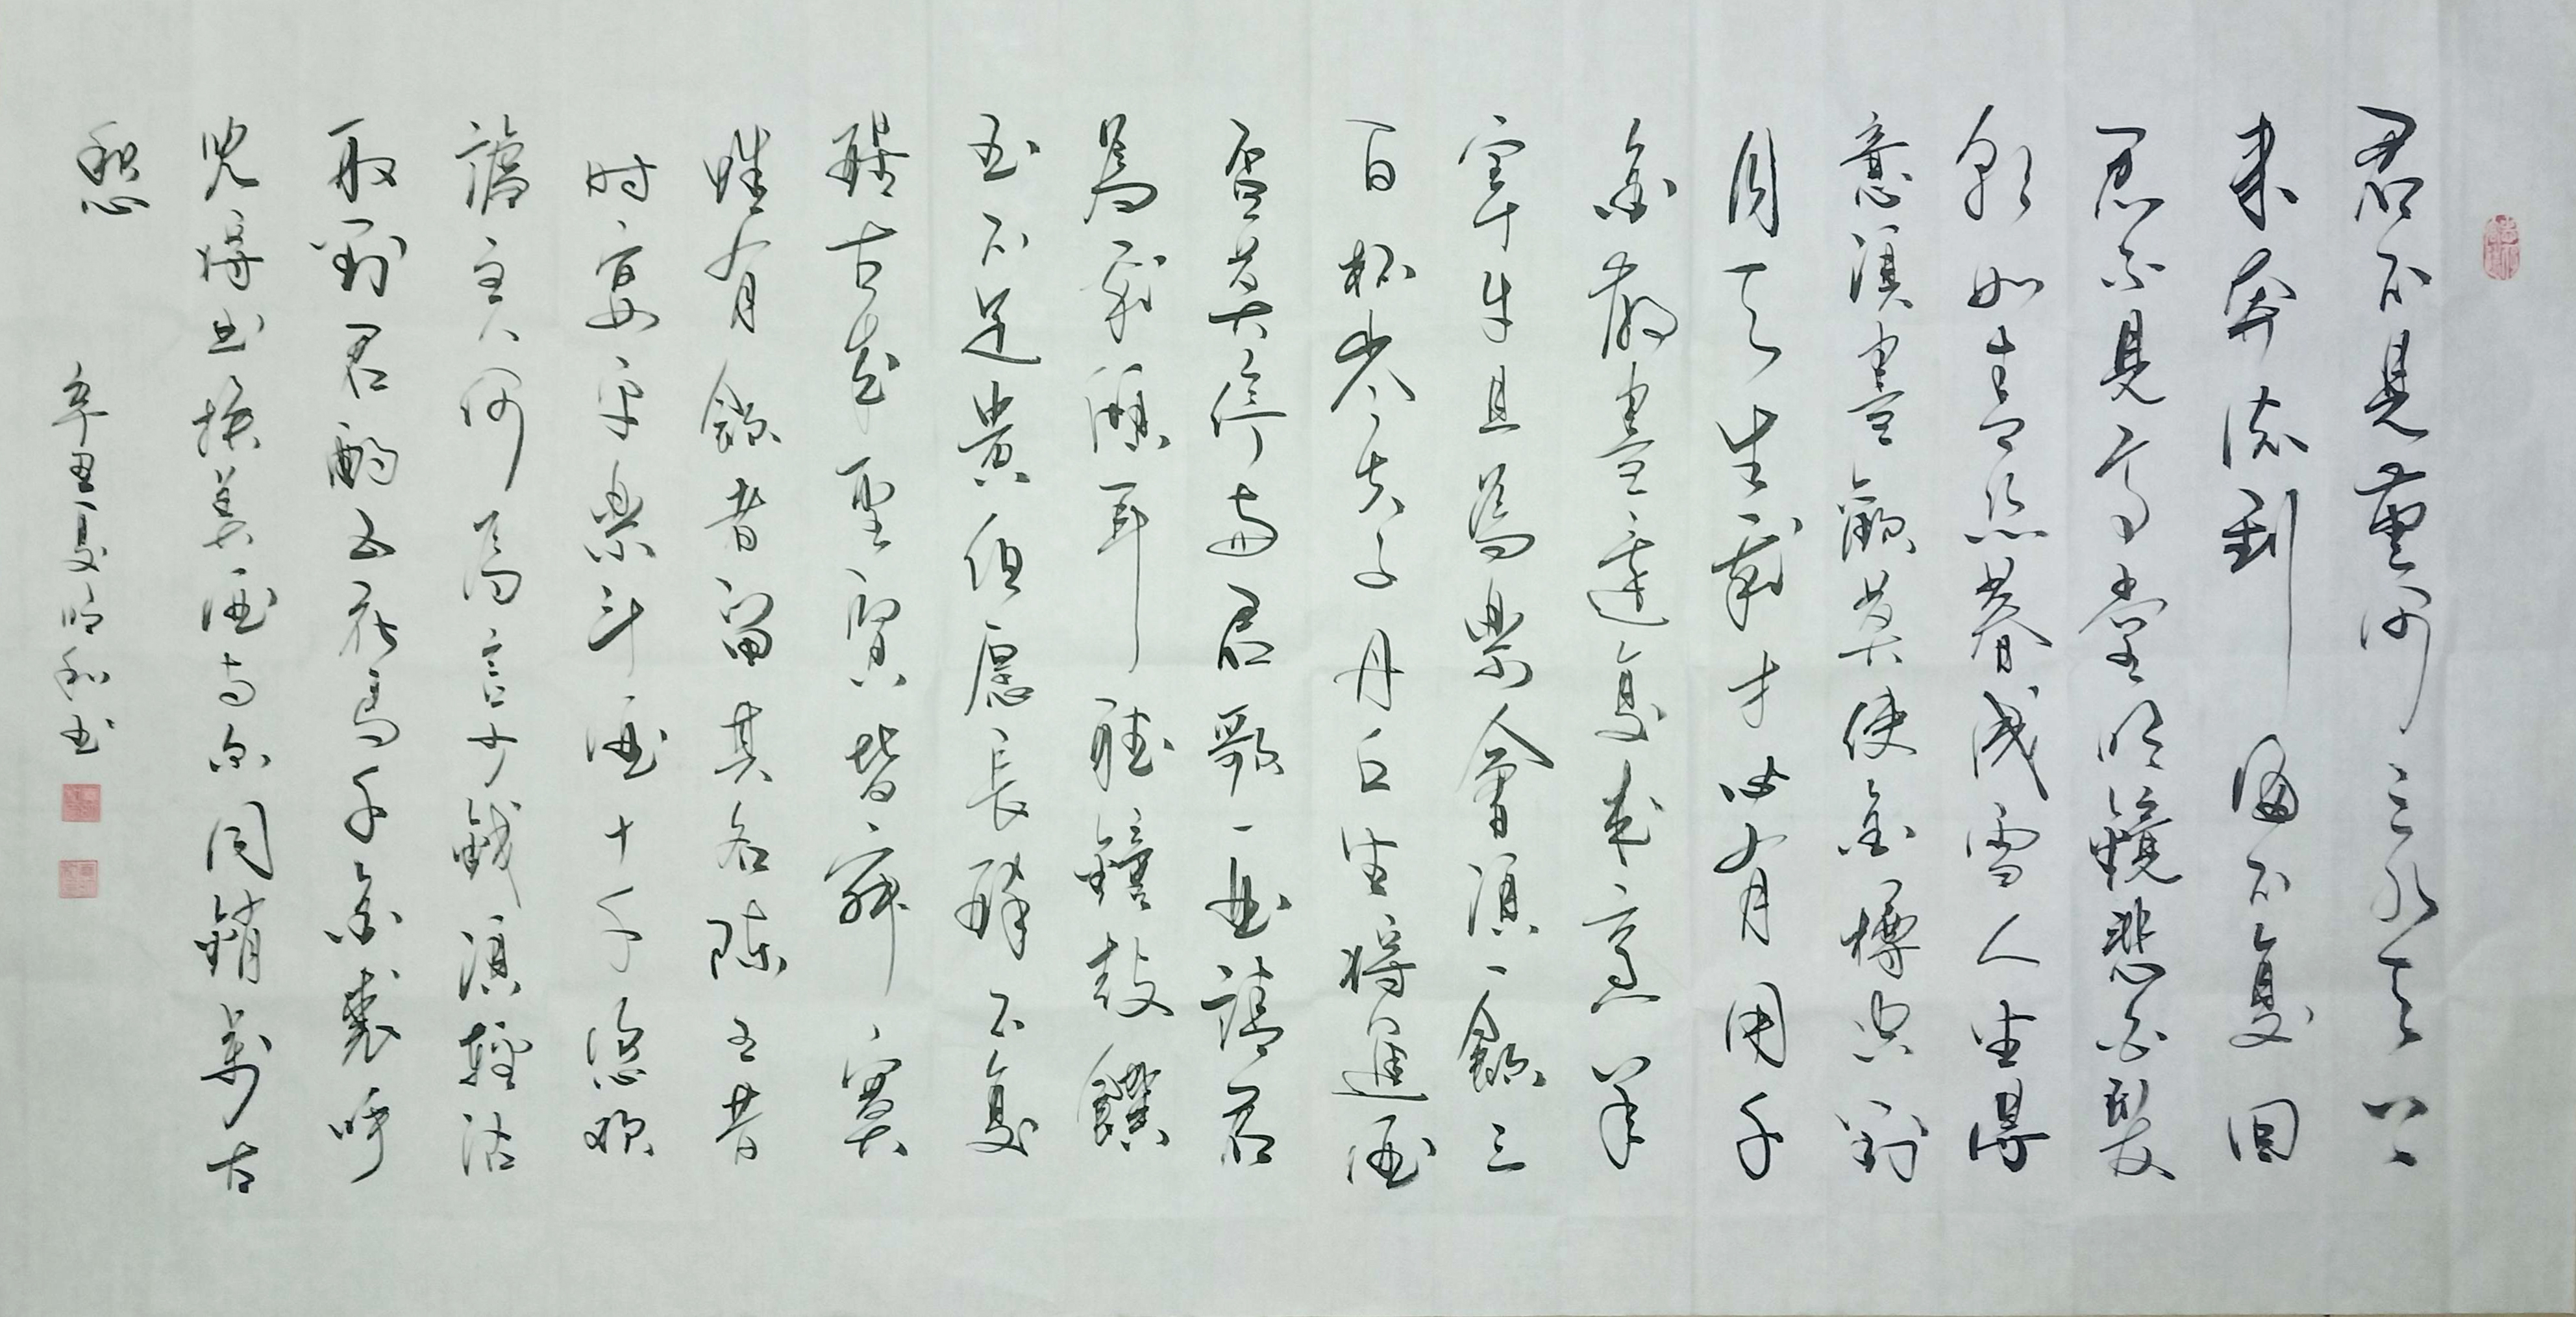 君不見黃河之水天上
来奔流到海不復回
君不見高堂明鏡悲白髮
朝如青絲暮成雪人生得
意須盡歡莫使金樽空對
月天生我才必有用千
金散盡還復来烹羊
宰牛且為樂會須一飲三
百杯岑夫子丹丘生將進酒
杯莫停與君歌一曲請君
為我傾耳聽鐘鼓饌
玉不足貴但願長醉不復
醒古来聖賢皆寂寞
惟有飲者留其名陳王昔
时宴平樂斗酒十千恣歡
謔主人何為言少錢須輕沽
取對君酌五花馬千金裘呼
兒將出換美酒与尔同銷萬古
愁
辛丑夏 和书